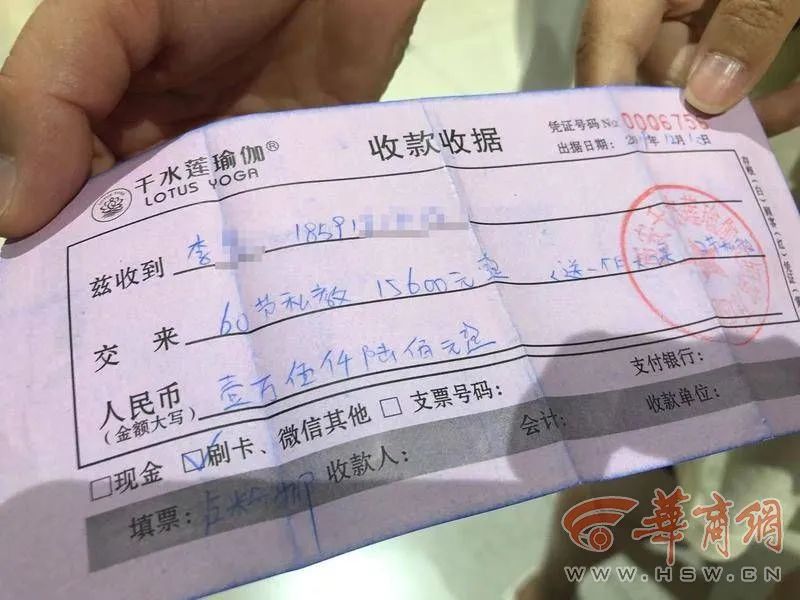 千水莲瑜伽®
LOTUS YOGA
收款收据
凭证号码 No 0006756
出据日期: 20 年12月12日
兹收到 李 18591
交来 60节私教 15600元整 (送一个月
人民币 壹万伍仟陆佰元整
(金额大写)
□现金 ☑刷卡、微信其他 □支票号码: 支付银行:
填票: 收款人: 会计: 收款单位:
存根(白) 顾客(红) 凭证
华商网
WWW.HSW.CN